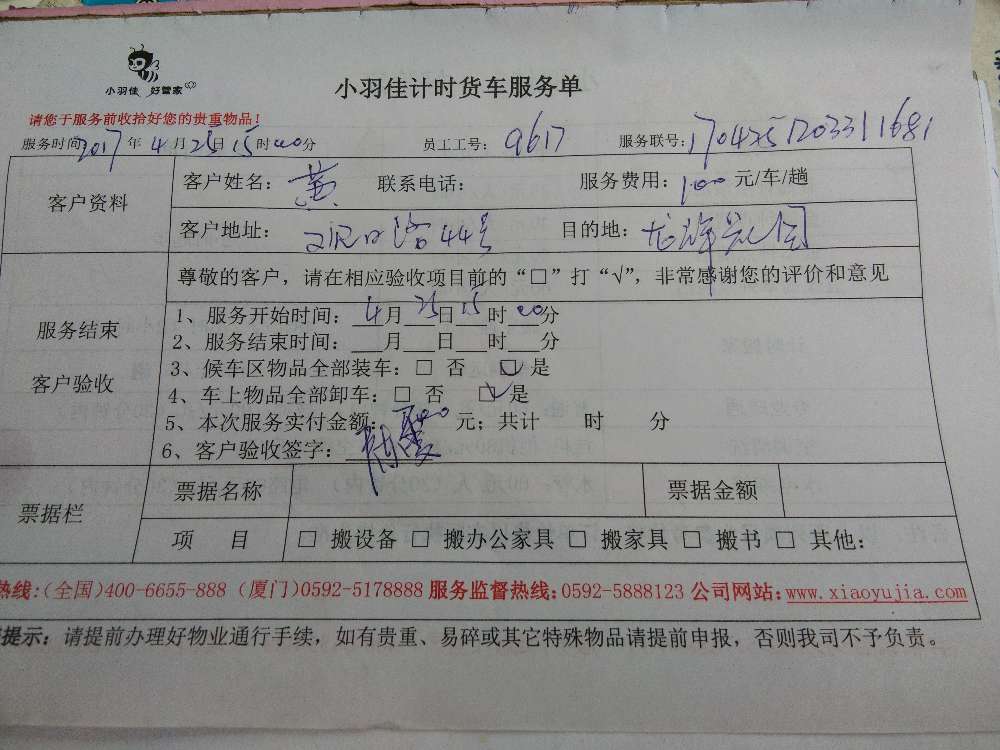 小羽佳 好管家
小羽佳计时货车服务单
请您于服务前收拾好您的贵重物品！
服务时间2017年4月25日15时00分 员工工号：9617 服务联号：1704251203311681
客户资料
客户姓名：黄 联系电话： 服务费用：100元/车/趟
客户地址：汉口路44号 目的地：
尊敬的客户，请在相应验收项目前的“□”打“√”，非常感谢您的评价和意见
服务结束
客户验收
1、服务开始时间：4月25日15时00分
2、服务结束时间：___月___日___时___分
3、候车区物品全部装车：□ 否 ☑ 是
4、车上物品全部卸车：□ 否 ☑ 是
5、本次服务实付金额： 元；共计 时 分
6、客户验收签字：
票据栏
票据名称 票据金额
项 目 □ 搬设备 □ 搬办公家具 □ 搬家具 □ 搬书 □ 其他：
热线：(全国)400-6655-888 (厦门)0592-5178888 服务监督热线：0592-5888123 公司网站：www.xiaoyujia.com
提示：请提前办理好物业通行手续，如有贵重、易碎或其它特殊物品请提前申报，否则我司不予负责。